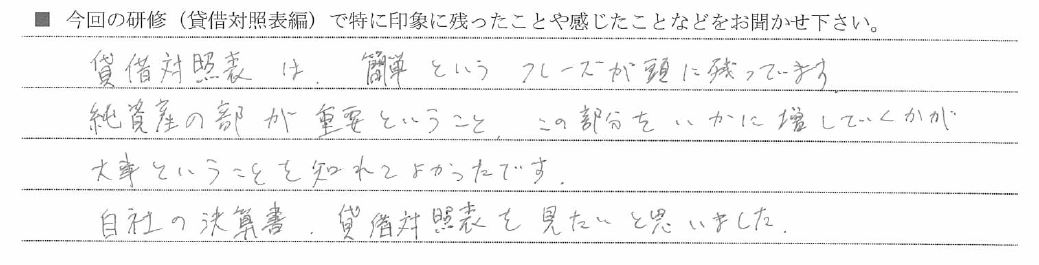 ■ 今回の研修（貸借対照表編）で特に印象に残ったことや感じたことなどをお聞かせ下さい。
貸借対照表は、簡単というフレーズが頭に残っています
純資産の部が重要ということ、この部分をいかに増していくかが
大事ということを知れてよかったです．
自社の決算書．貸借対照表を見たいと思いました．